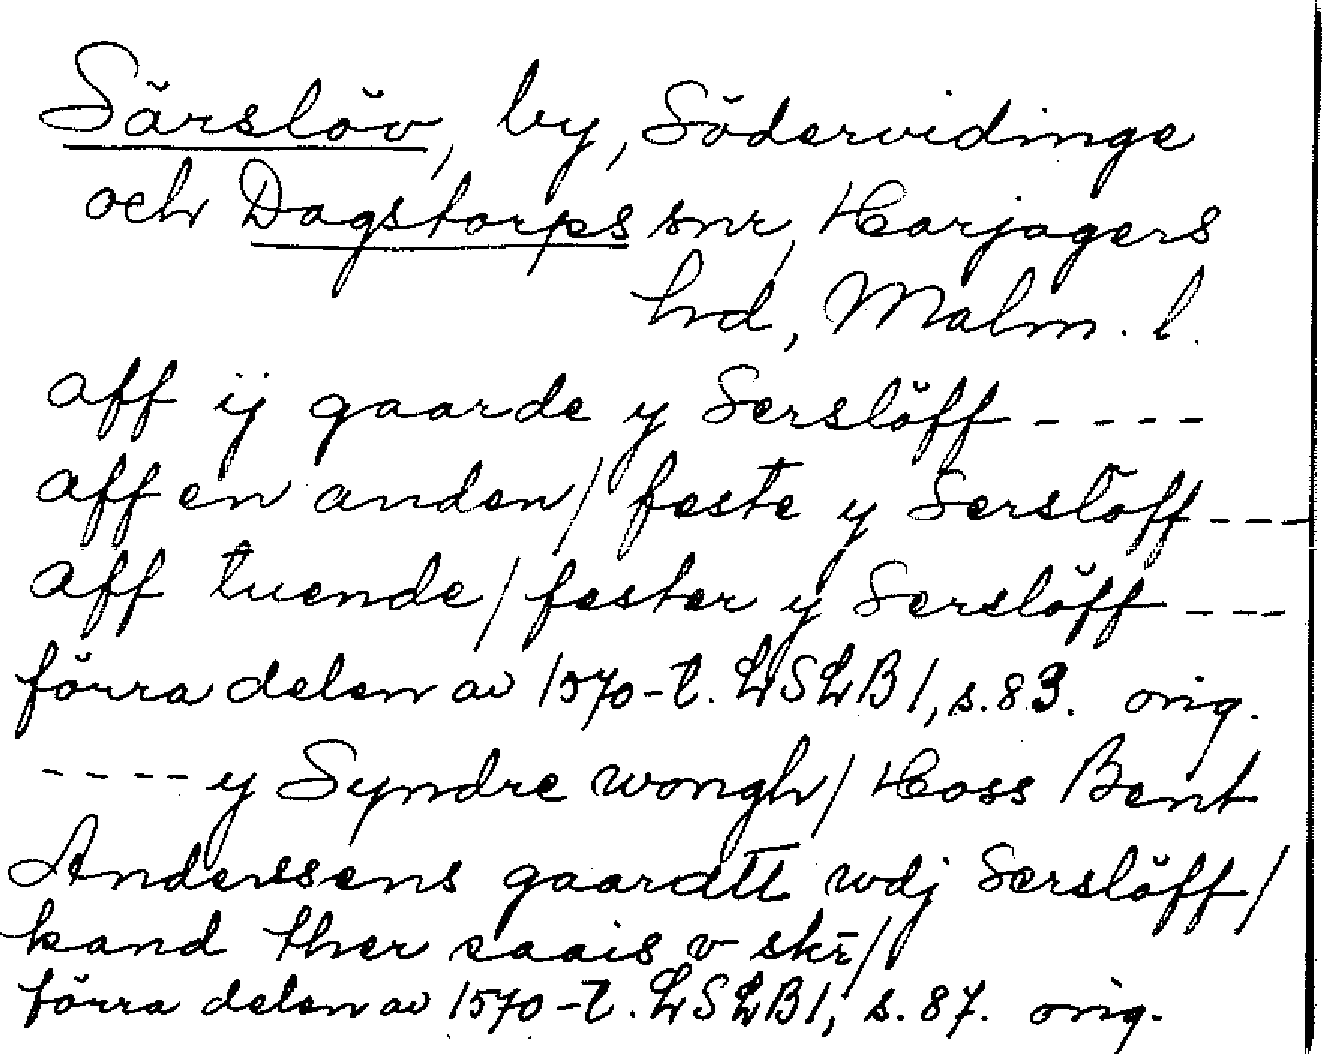 Särslöv, by, Södervidinge
och Dagstorps snr, Harjagers
hrd, Malm. l.
aff ij gaarde y Serslöff ----
aff en anden / feste y Serslöff ---
aff tuende / fester y Serslöff ---
förra delen av 1570-t. LSLB 1, s. 83. orig.
---- y Syndre wongh / Hoss Bent
Anderssens gaardtt wdj Serslöff /
kand ther saais v skr̄ /
förra delen av 1570-t. LSLB 1, s. 87. orig.